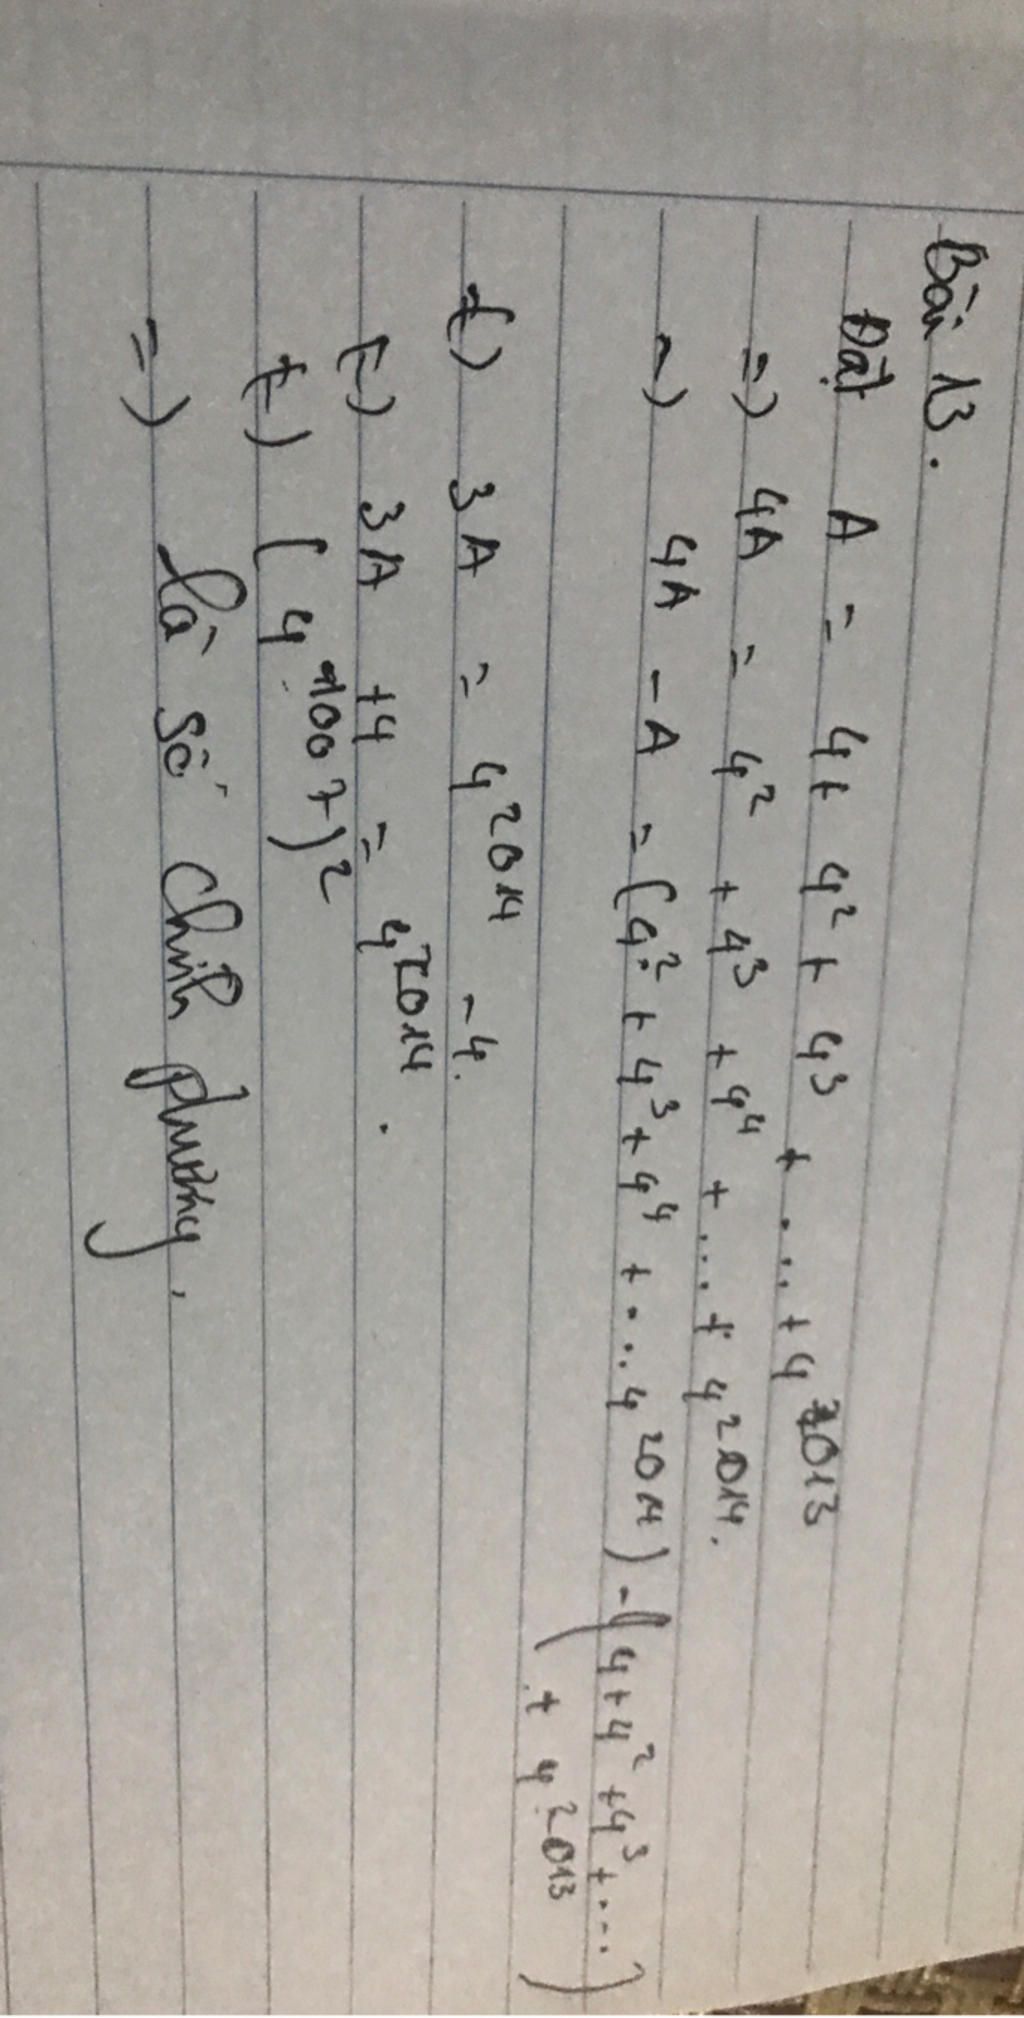 Bài 13.
Đặt A = 4 + 4² + 4³ + ... + 4²⁰¹³
=) 4A = 4² + 4³ + 4⁴ + ... + 4²⁰¹⁴.
=) 4A - A = (4² + 4³ + 4⁴ + ... 4²⁰¹⁴) - (4 + 4² + 4³ + ...
+ 4²⁰¹³)
(=) 3A = 4²⁰¹⁴ - 4.
(=) 3A + 4 = 4²⁰¹⁴.
(=) (4¹⁰⁰⁷)²
=) là số chính phương.